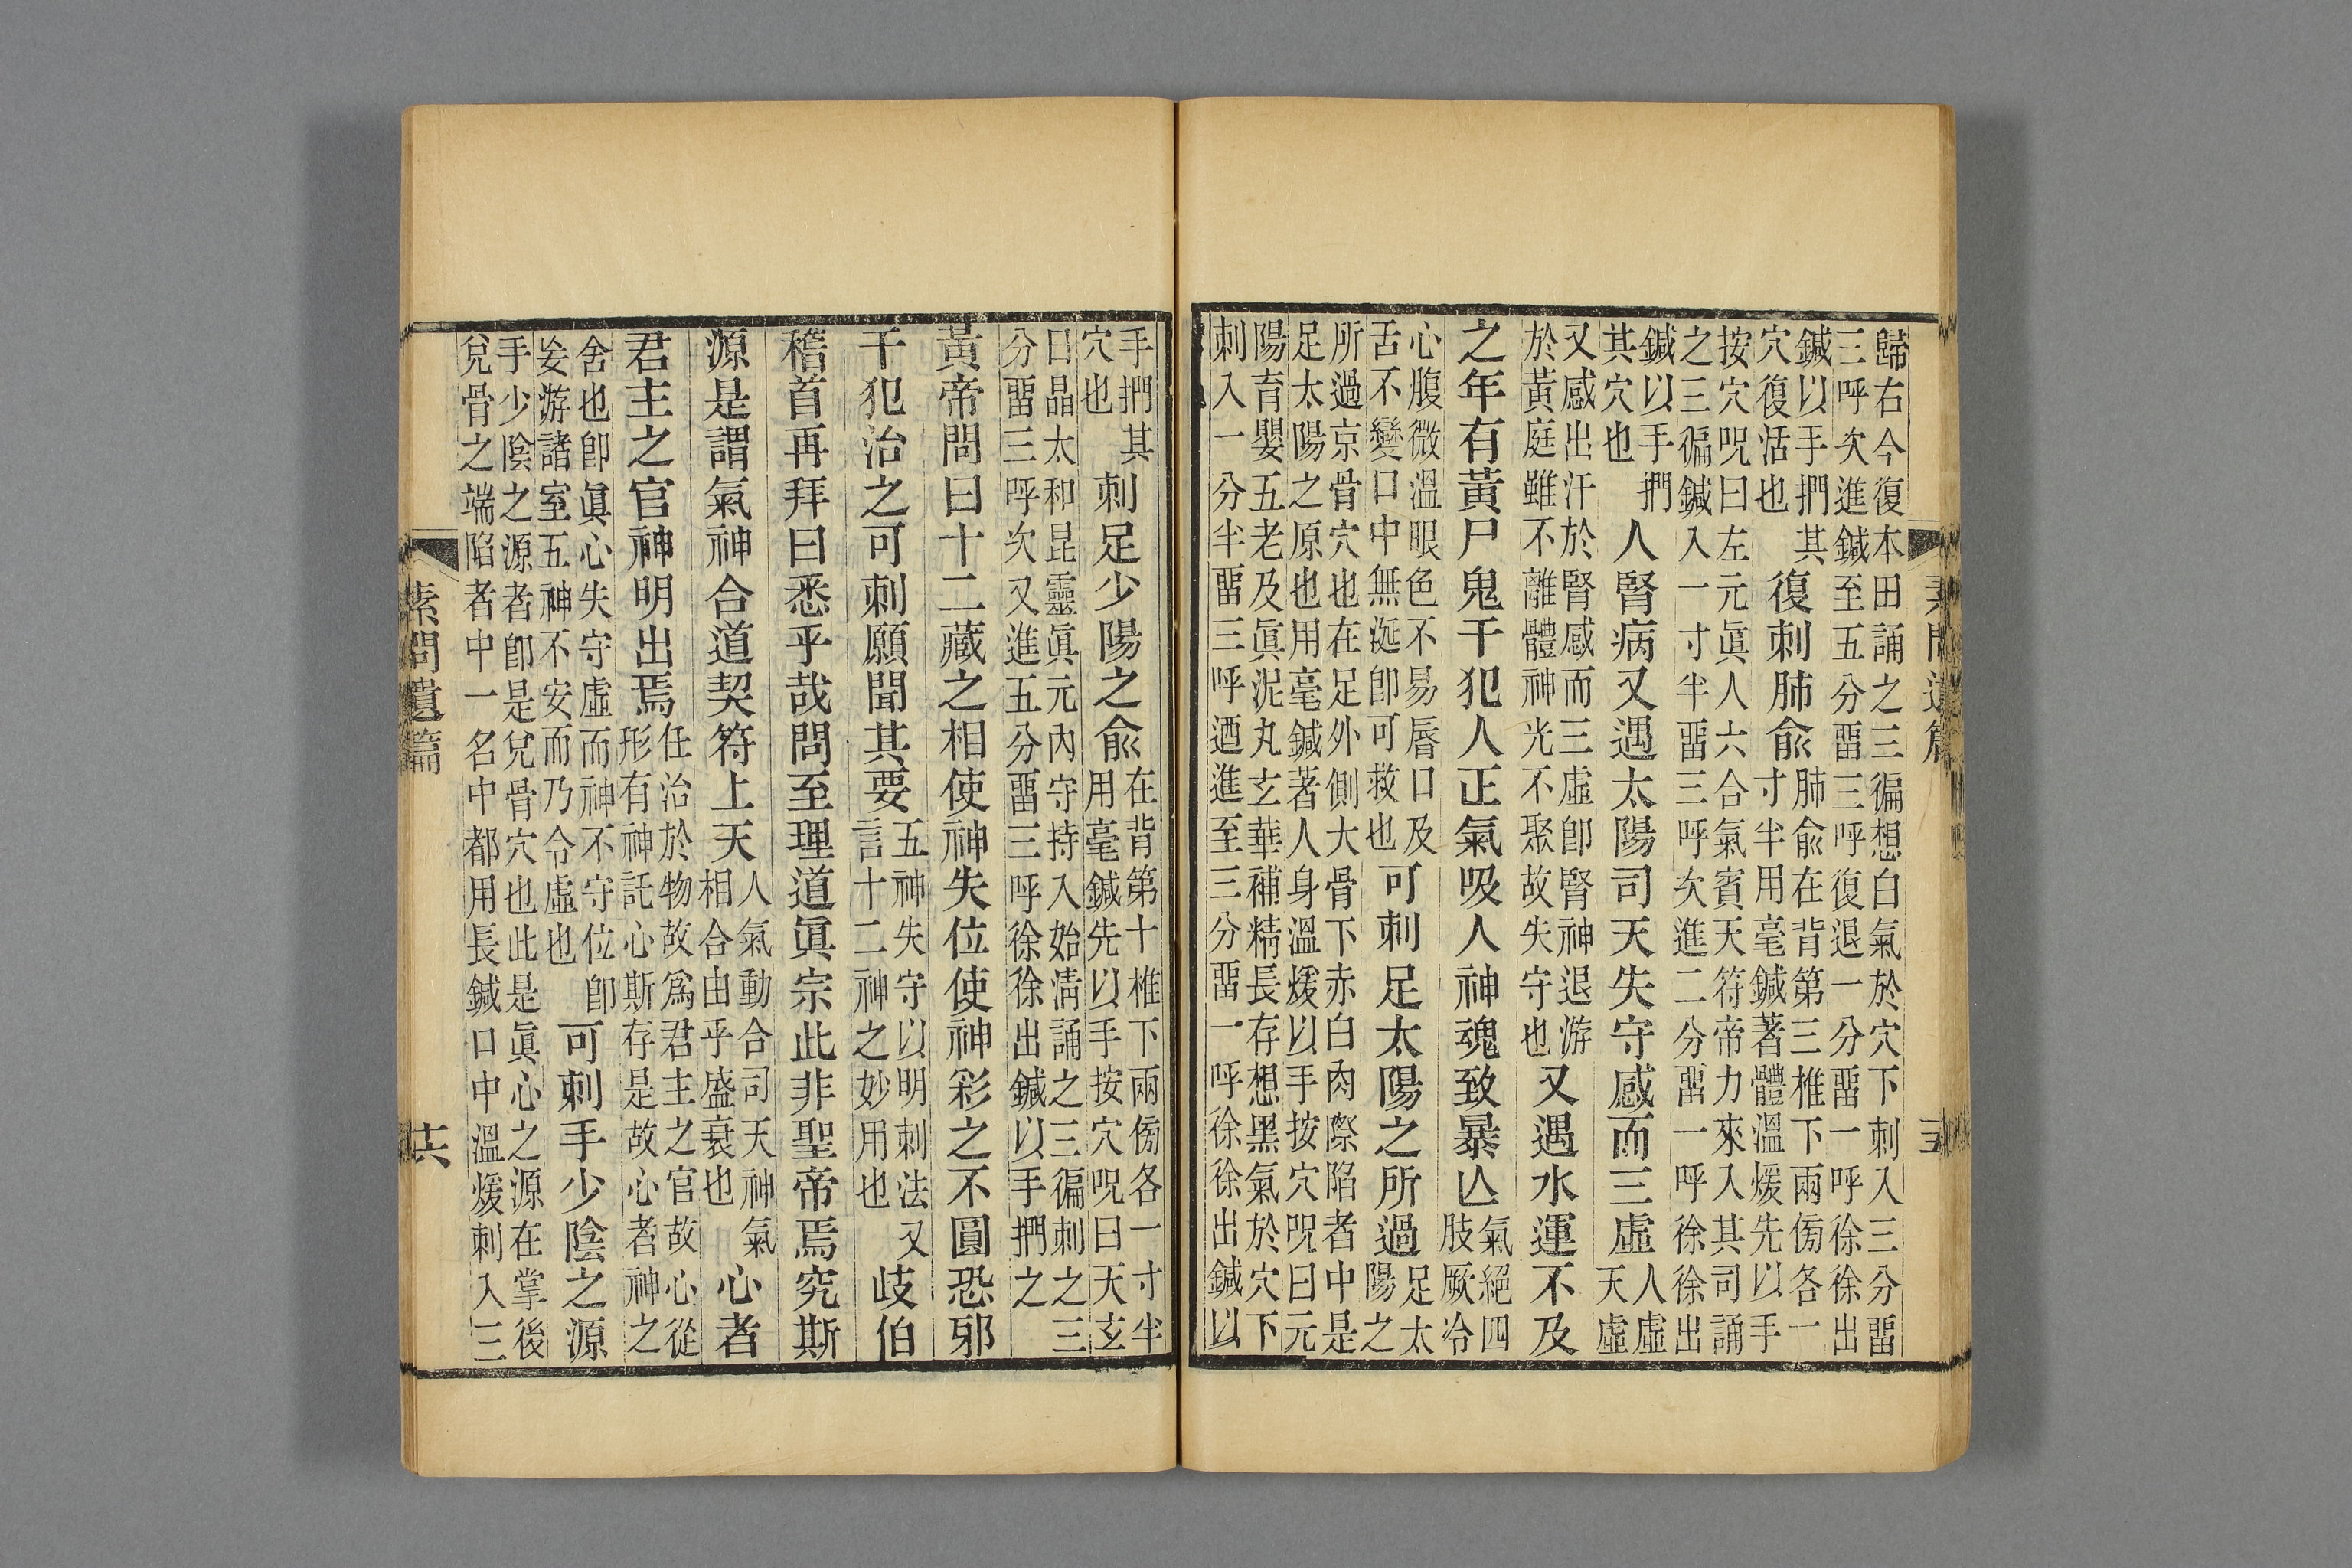 歸右今復本田誦之三徧想白氣於穴下刺入三分畱
三呼次進鍼至五分畱三呼復退一分畱一呼徐徐出
鍼以手捫其
穴復活也
復刺肺俞
肺俞在背第三椎下兩傍各一
寸半用毫鍼著體溫煖先以手
按穴呪曰左元眞人六合氣賓天符帝力來入其司誦
之三徧鍼入一寸半畱三呼次進二分畱一呼徐徐出
鍼以手捫
其穴也
人腎病又遇太陽司天失守感而三虛
人虛
天虛
又感出汗於腎感而三虛卽腎神退游
於黃庭雖不離體神光不聚故失守也
又遇水運不及
之年有黃尸鬼干犯人正氣吸人神魂致暴亾
氣絕四
肢厥冷
心腹微溫眼色不易唇口及
舌不變口中無涎卽可救也
可刺足太陽之所過
足太
陽之
所過京骨穴也在足外側大骨下赤白肉際陷者中是
足太陽之原也用毫鍼著人身溫煖以手按穴呪曰元
陽育嬰五老及眞泥丸玄華補精長存想黑氣於穴下
刺入一分半畱三呼迺進至三分畱一呼徐徐出鍼以
手捫其
穴也
刺足少陽之俞
在背第十椎下兩傍各一寸半
用毫鍼先以手按穴呪曰天玄
日晶太和昆靈眞元內守持入始淸誦之三徧刺之三
分畱三呼次又進五分畱三呼徐徐出鍼以手捫之
黃帝問曰十二藏之相使神失位使神彩之不圓恐邪
干犯治之可刺願聞其要
五神失守以明刺法又
言十二神之妙用也
歧伯
稽首再拜曰悉乎哉問至理道眞宗此非聖帝焉究斯
源是謂氣神合道契符上天
人氣動合司天神氣
相合由乎盛衰也
心者
君主之官神明出焉
任治於物故爲君主之官故心從
形有神託心斯存是故心者神之
舍也卽眞心失守虛而神不守位卽
妄游諸室五神不安而乃令虛也
可刺手少陰之源
手少陰之源者卽是兌骨穴也此是眞心之源在掌後
兌骨之端陷者中一名中都用長鍼口中溫煖刺入三
素問遺篇
十六